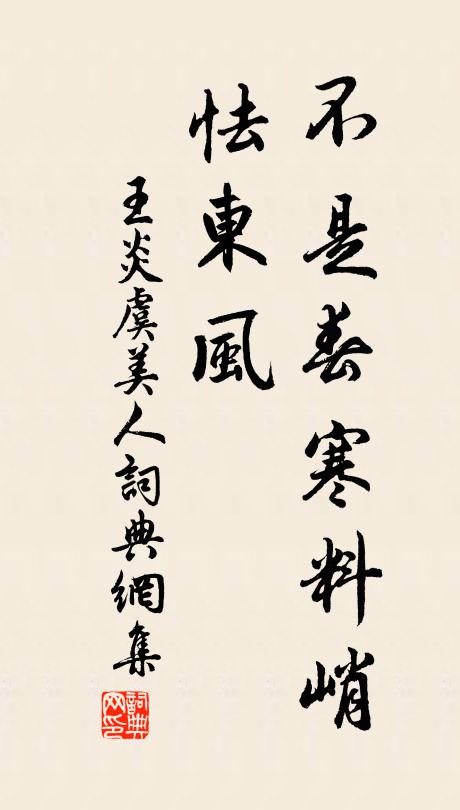 不是春寒料峭
怯東風
王炎虞美人詞典網集
詞典网印